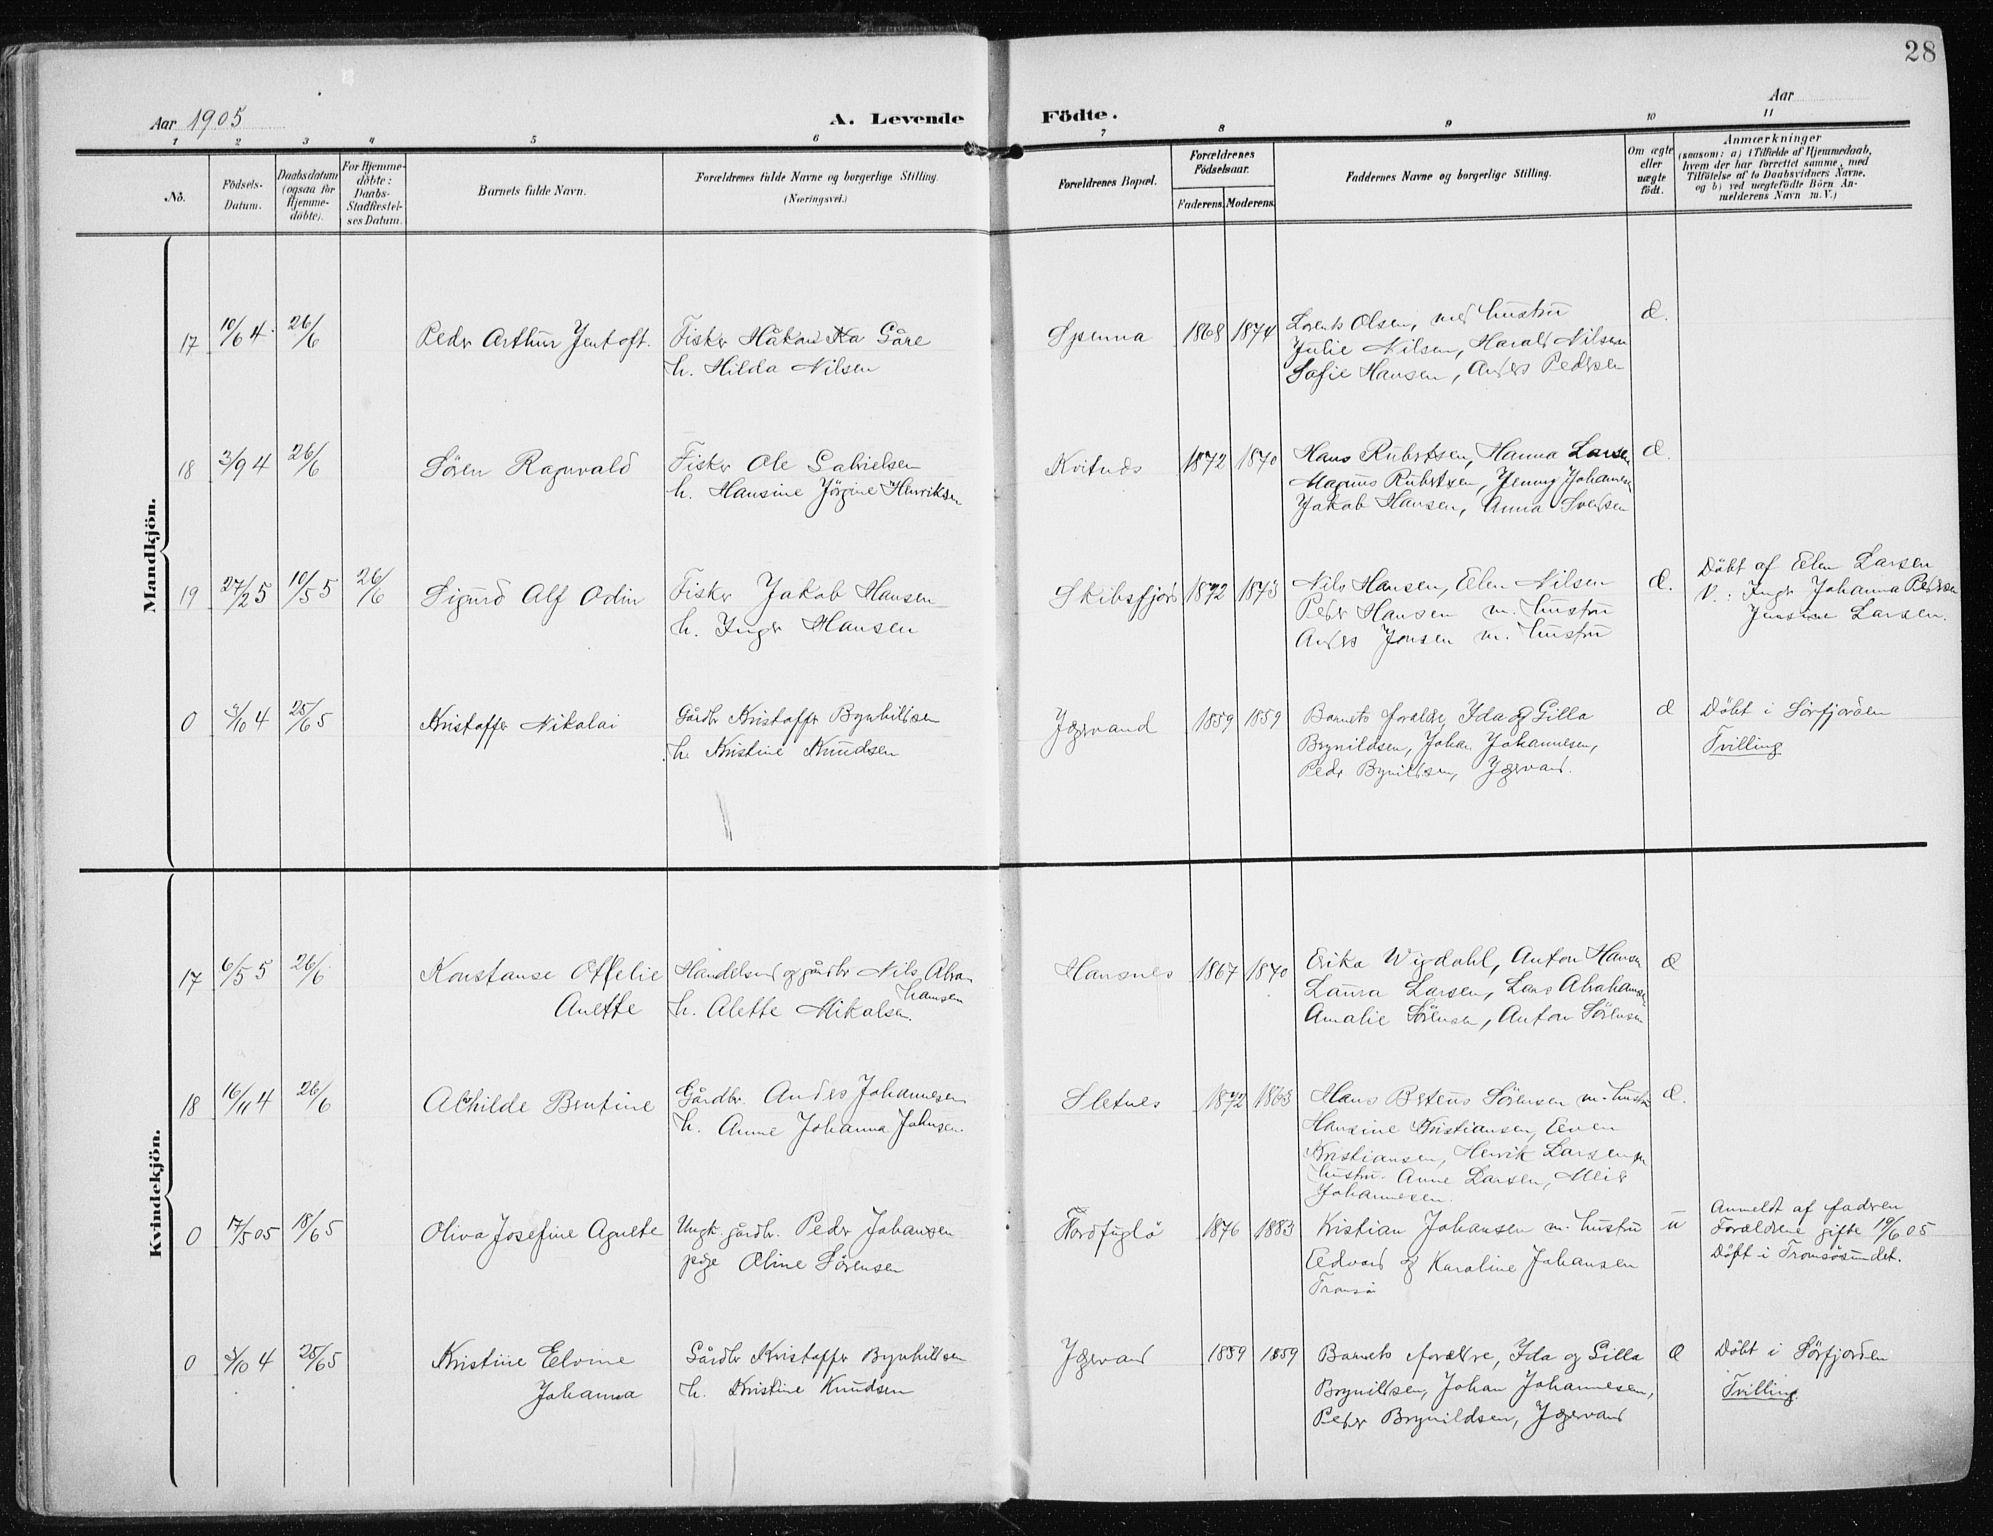 28
Aar 1905
A. Levende
Födte.
Aar
1 2 3 4 5 6 7 8 9 10 11
No.
Födsels-Datum.
Daabsdatum (ogsaa for Hjemme-döbte).
For Hjemme-döbte: Daabs-Stadfæstel-ses Datum.
Barnets fulde Navn.
Forældrenes fulde Navne og borgerlige Stilling.
(Næringsvei.)
Forældrenes Bopæl.
Forældrenes Födselsaar.
Faderens. Moderens.
Faddernes Navne og borgerlige Stilling.
Om ægte eller uægte födt.
Anmærkninger
(saasom: a) i Tilfælde af Hjemmedaab,
hvem der har forrettet samme, med
Tilföielse af to Daabsvidners Navne,
og b) ved uægtefödte Börn An-
melderens Navn m.V.)
Mandkjön.
17 10/6 4 26/6 Peder Arthur Jentoft. Fisker Håkon Gåre
h. Hilda Nilsen
Spenna 1868 1874
Lorents Olsen, med hustru
Julie Nilsen, Harald Nilsen
Sofie Hansen, Anders Pedersen
Æ.
18 3/9 4 26/6 Sören Ragnvald Fisker Ole Gabrielsen
h. Hansine Jörgine Henriksen
Kvitnes 1872 1870
Hans Rubertsen, Hanna Larsen
Magnus Rubertsen, Jenny Johannesen
Jakob Hansen, Anna Svendsen
Æ.
19 27/2 5 10/5 5 26/6 Sigurd Alf Odin Fisker Jakob Hansen
h. Inger Hansen
Skibsfjord 1872 1873
Nils Hansen, Elen Nilsen
Peder Hansen m. hustru
Anders Jensen m. hustru
Æ.
Döbt af Elen Larsen
V.: Inger Johanna Pedersen
Jensine Larsen.
0 3/10 4 25/6 5 Kristoffer Nikolai Gårdbr Kristoffer Brynhildsen
h. Kristine Knudsen
Jægervand 1859 1859
Barnets forældre, Ida og Gilla
Brynildsen, Johan Johannesen,
Peder Brynildsen, Jægervand.
Æ
Döbt i Sörfjorden
Tvilling
Kvindekjön.
17 6/5 5 26/6 Konstanse Offelie
Anette
Handelsmd og gårdbr Nils Abra
hamsen
h. Alette Mikalsen.
Hansnes 1867 1870
Erika Wigdahl, Anton Hansen
Laura Larsen, Lars Abrahamsen
Amalie Sörensen, Anton Sörensen
Æ
18 16/11 4 26/6 Alhilde Bentine Gårdbr. Anders Johannesen
h. Anne Johanna Johnsen.
Sletnes 1872 1863
Hans Berteus Sörensen m. hustru
Hansine Kristiansen, Even
Kristiansen, Henrik Larsen m
hustru. Anne Larsen, Meier
Johannesen.
Æ.
0 17/5 05 18/6 5 Oliva Josefine Agnete Ungk. gårdbr. Peder Johansen
pige Oline Sörensen
Nordfuglö 1876 1883
Kristian Johansen m. hustru
Edvard og Karoline Johansen
Tromsö
u
Anmeldt af faderen
Forældrene gifte 19/6 05
Döbt i Tromsösundet.
0 3/10 4 25/6 5 Kristine Elvine
Johanna
Gårdbr Kristoffer Brynhildsen
h. Kristine Knudsen
Jægervand 1859 1859
Barnets forældre, Ida og Gilla
Brynildsen, Johan Johannesen,
Peder Brynildsen, Jægervand
Æ
Döbt i Sörfjorden
Tvilling.